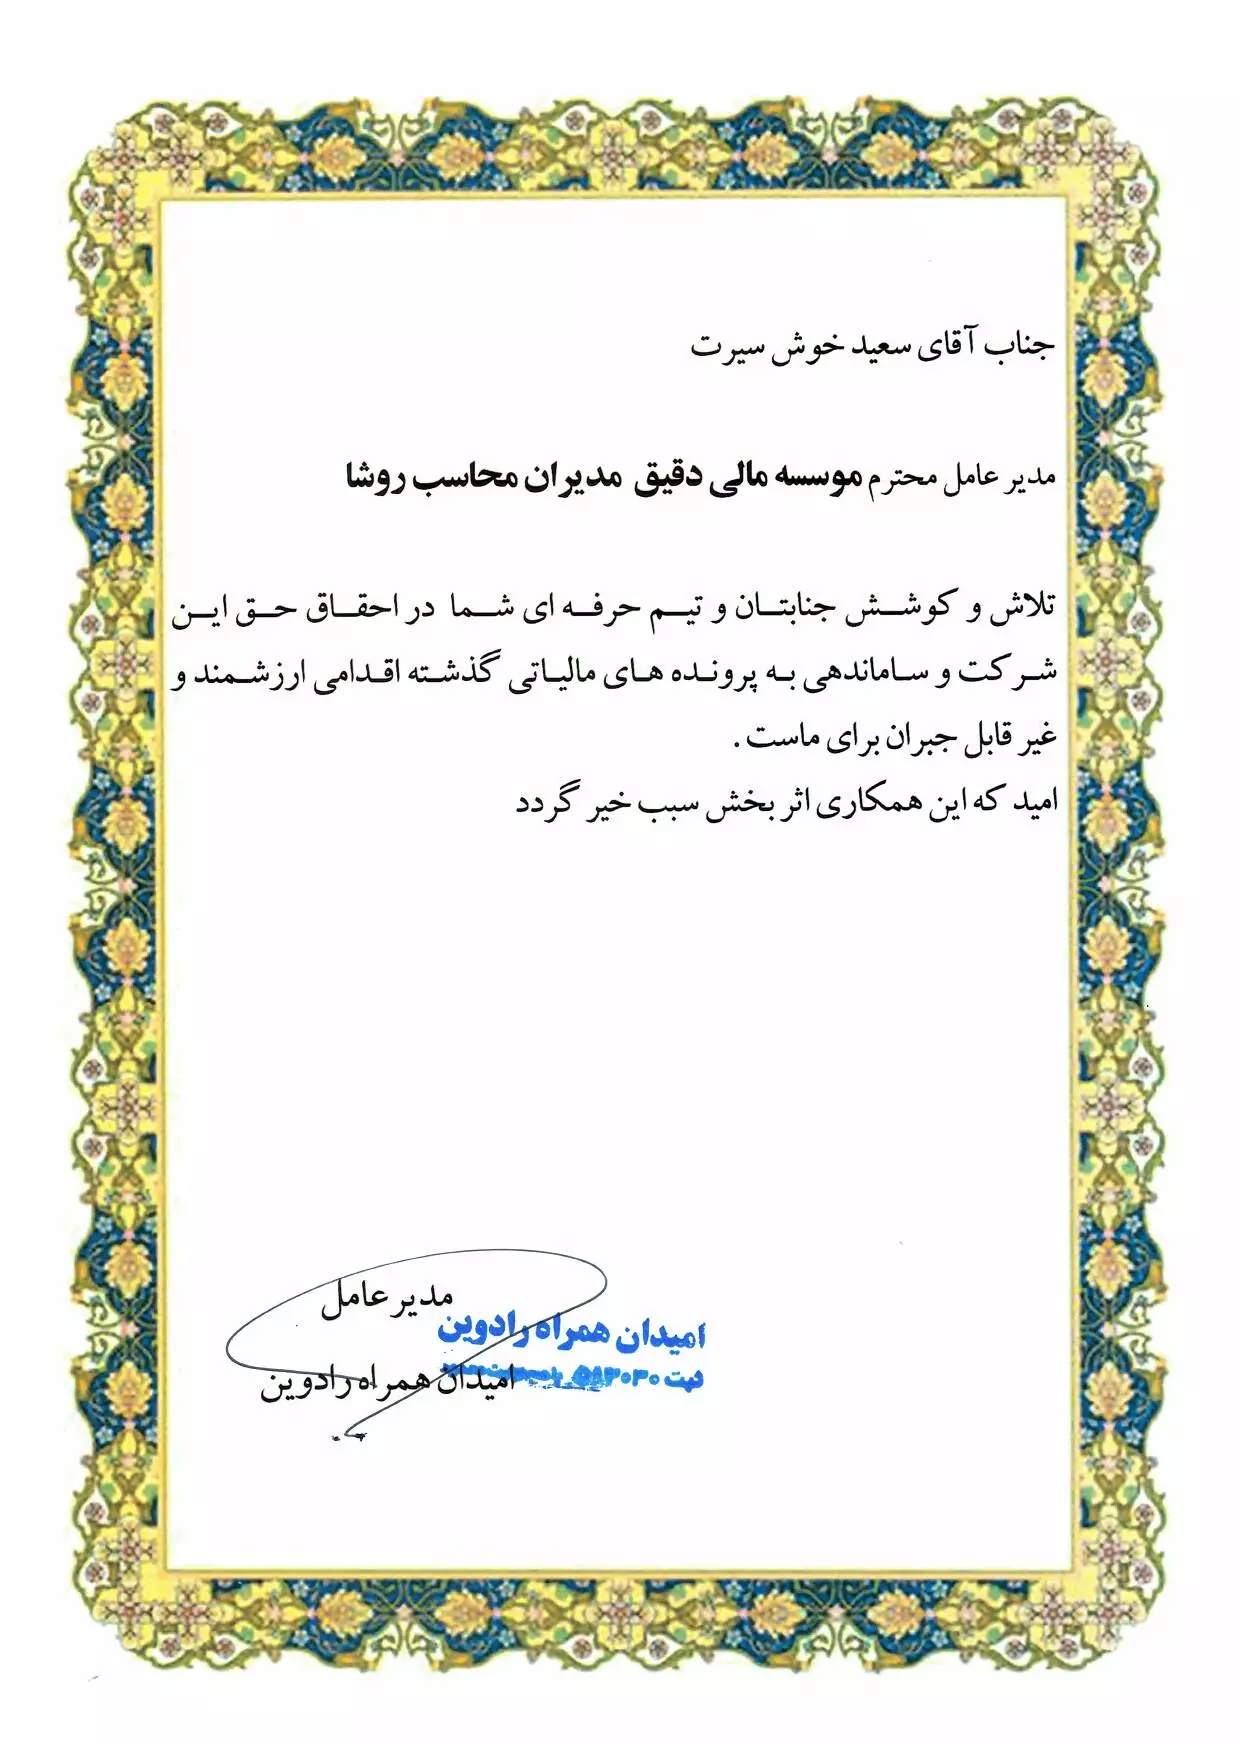 جناب آقای سعید خوش سیرت
مدیر عامل محترم موسسه مالی دقیق مدیران محاسب روشا
تلاش و کوشش جنابتان و تیم حرفه ای شما در احقاق حق این
شرکت و ساماندهی به پرونده های مالیاتی گذشته اقدامی ارزشمند و
غیر قابل جبران برای ماست .
امید که این همکاری اثر بخش سبب خیر گردد
مدیر عامل
امیدان همراه رادوین
ثبت ۵۸۳۰۳۰
امیدان همراه رادوین